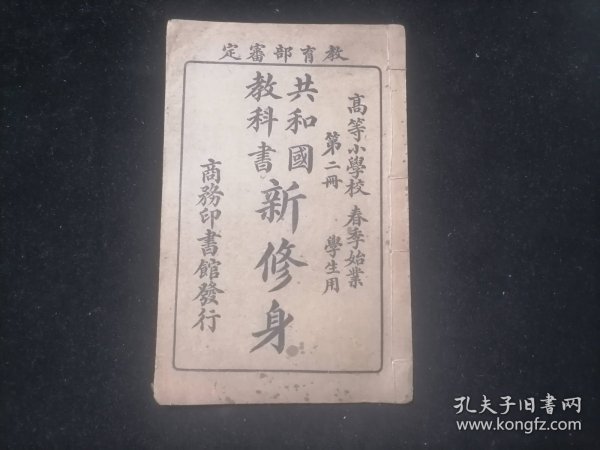 教育部審定
高等小學校 春季始業
第二冊 學生用
共和國
教科書
新修身
商務印書館發行
孔夫子旧书网
www.kongfz.com